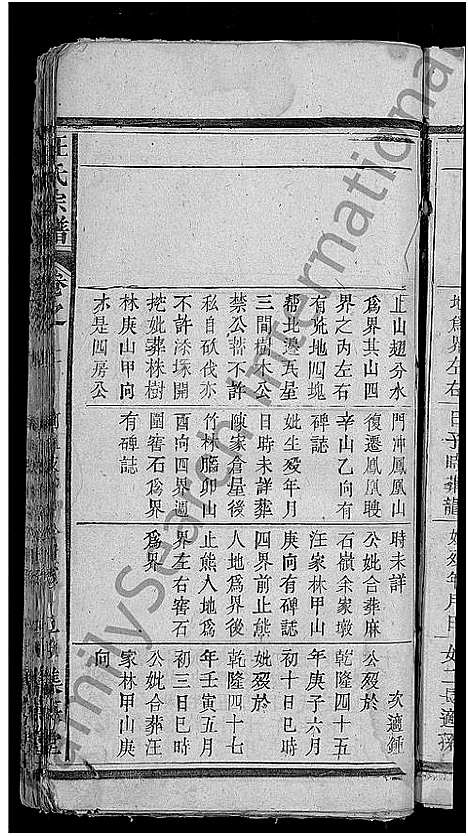 汪氏宗譜
卷之
止山翅分水
爲界其山四
界之內左右
有㘭地四塊
幇北邊瓦屋
三間樹木公
禁公蓄不許
私自砍伐亦
不許添塜開
挖妣葬株樹
林庚山甲向
亦是四房公
門冲鳳凰山
復遷鳳凰聘
辛山乙向有
碑誌
妣生歿年月
日時未詳葬
陳家倉屋後
竹林腦卯山
酉向四界週
圍窖石爲界
有碑誌
時未詳
公妣合葬麻
石嶺余家墩
汪家林甲山
庚向有碑誌
四界前止熊
人地爲界後
止熊人地爲
界左右窖石
爲界
次適鍾
公歿於
乾隆四十五
年庚子六月
初十日巳時
妣歿於
乾隆四十七
年壬寅五月
初三日巳時
公妣合葬汪
家林甲山庚
向
FamilySearch International